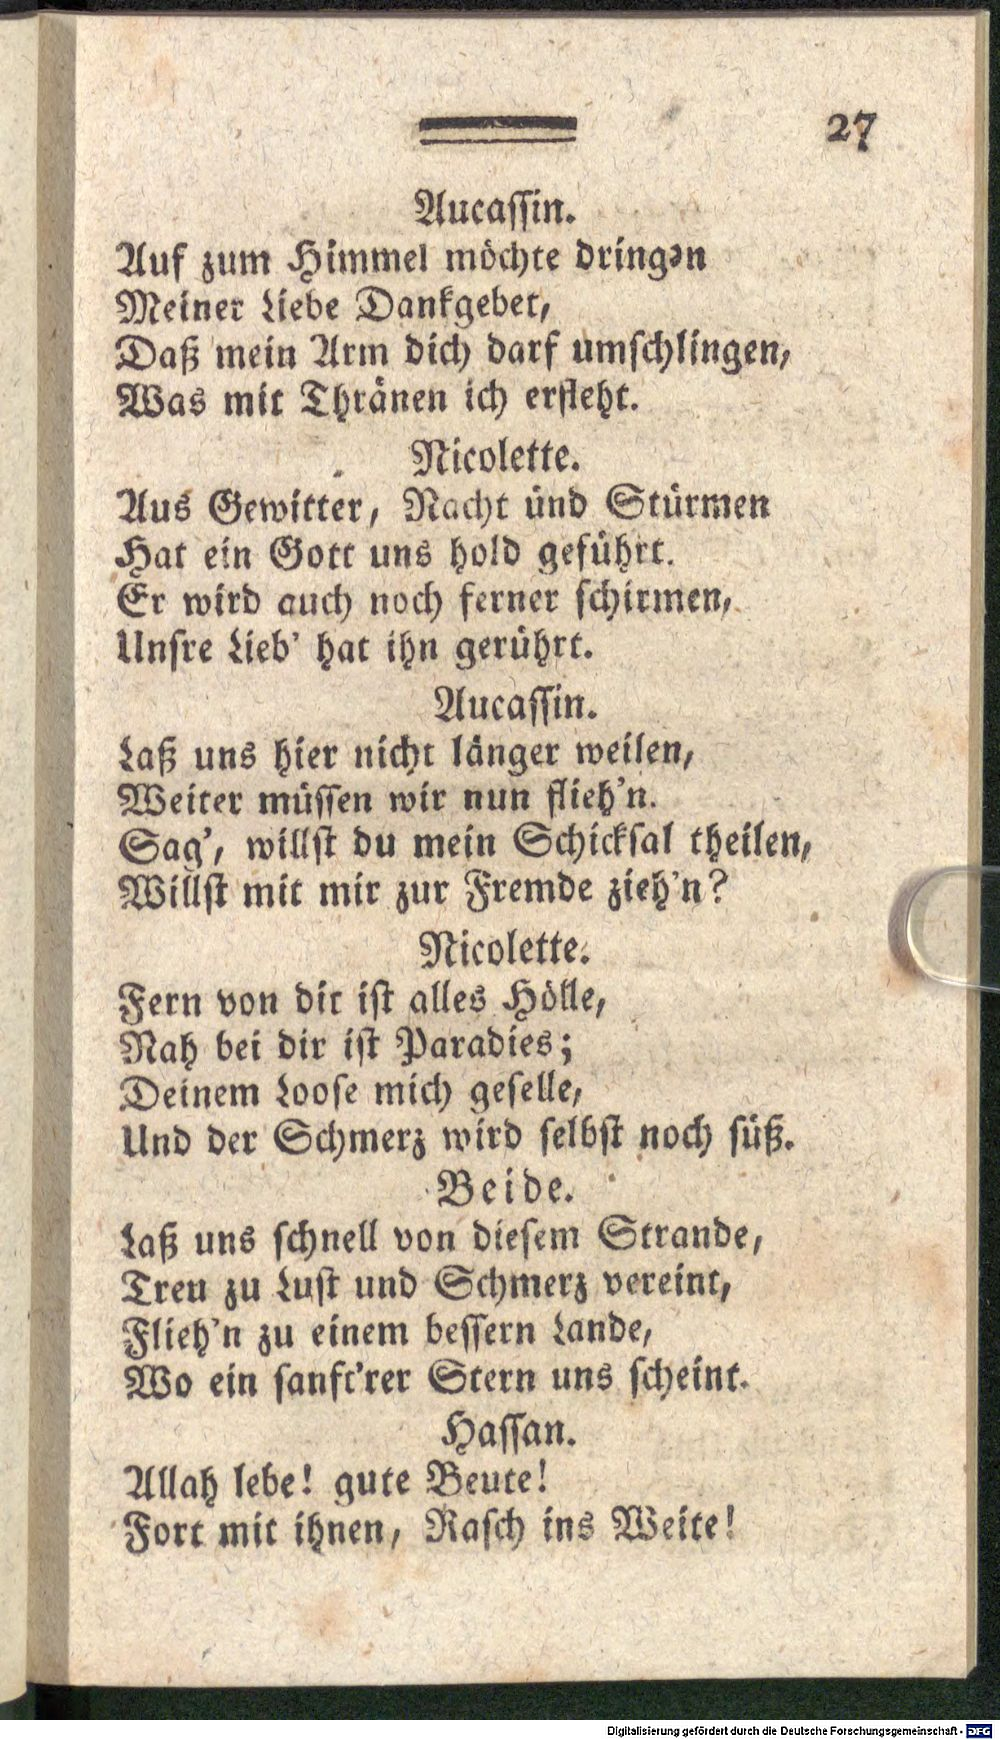 27
Aucassin.
Auf zum Himmel möchte dringen
Meiner Liebe Dankgebet,
Daß mein Arm dich darf umschlingen,
Was mit Thränen ich erfleht.
Nicolette.
Aus Gewitter, Nacht und Stürmen
Hat ein Gott uns hold geführt.
Er wird auch noch ferner schirmen,
Unsre Lieb' hat ihn gerührt.
Aucassin.
Laß uns hier nicht länger weilen,
Weiter müssen wir nun flieh'n.
Sag', willst du mein Schicksal theilen,
Willst mit mir zur Fremde zieh'n?
Nicolette.
Fern von dir ist alles Hölle,
Nah bei dir ist Paradies;
Deinem Loose mich geselle,
Und der Schmerz wird selbst noch süß.
Beide.
Laß uns schnell von diesem Strande,
Treu zu Lust und Schmerz vereint,
Flieh'n zu einem bessern Lande,
Wo ein sanft'rer Stern uns scheint.
Hassan.
Allah lebe! gute Beute!
Fort mit ihnen, Rasch ins Weite!
Digitalisierung gefördert durch die Deutsche Forschungsgemeinschaft - DFG